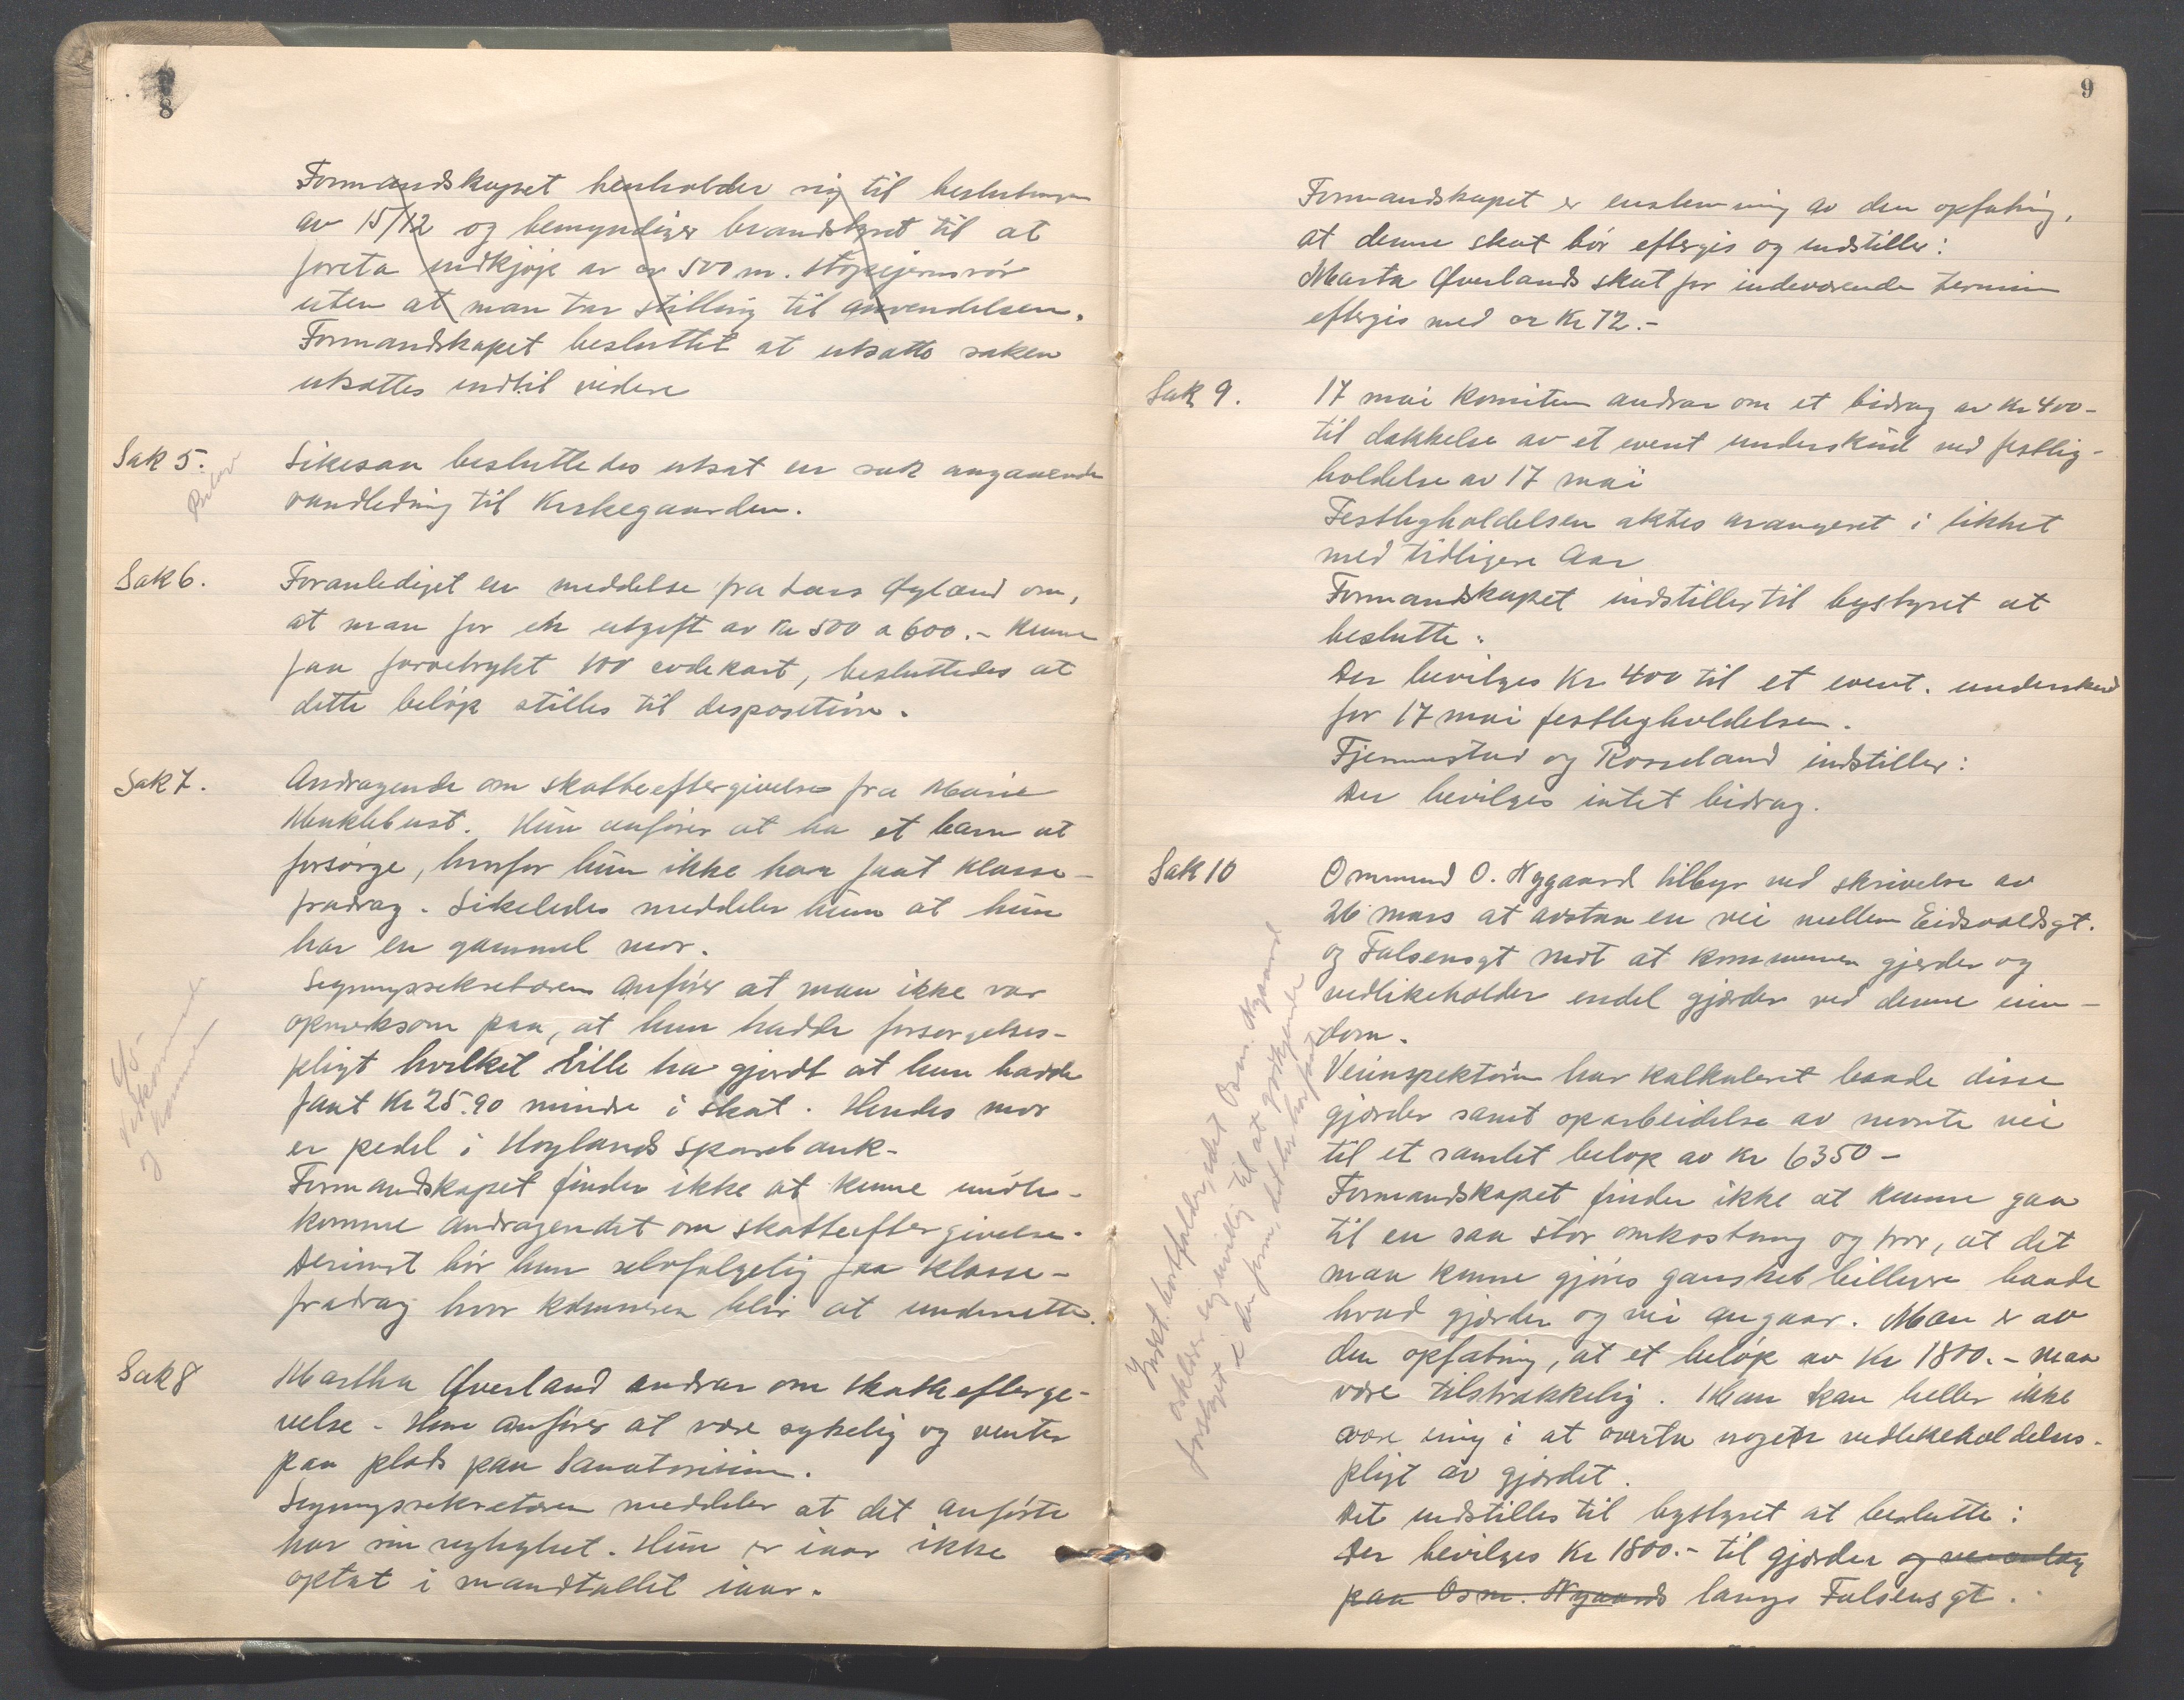 8
Formandskapet henholder sig til beslutningen
av 15/12 og bemyndiger brandstyret til at
foreta indkjøp av ca 500 m. støpejernsrør
uten at man tar stilling til anvendelsen.
Formandskapet besluttet at utsatte saken
utsættes indtil videre
Sak 5.
Likesaa besluttedes utsat en sak angaaende
vandledning til Kirkegaarden.
Sak 6.
Foranlediget en meddelse fra Lars Øglænd om,
at man for en utgift av Kr 500 a 600.- kunne
faa farvetrykt 100 code kart, besluttedes at
dette beløp stilles til desposetion.
Sak 7.
Andragende om skatteeftergivelse fra Marie
Hun anfører at ha et barn at
forsørge, hvorfor hun ikke har faat klasse-
fradrag. Likeledes meddeler hun at hun
har en gammel mor.
Ligningssekretæren anfører at man ikke var
opmerksom paa, at hun hadde forsørgelses-
pligt hvilket ville ha gjordt at hun hadde
faat Kr 25.90 mindre i skat. Hendes mor
er pedel i Høylands Sparebank.
Formandskapet finder ikke at kunne imøte-
komme andragendet om skatteeftergivelse.
Derimot bør hun selvfølgelig faa klasse-
fradrag hvor kæmneren blir at underrette.
Sak 8
Martha Øverland andrar om skatteefterge-
velse. Hun anfører at være sykelig og venter
paa plads paa Sanatorium.
Ligningssekretæren meddeler at det anførte
har sin rigtighet. Hun er iaar ikke
optat i mandtallet iaar.
9
Formandskapet er enstemmig av den opfatning,
at denne skat bør eftergis og indstiller:
Marta Øverlands skat for indeværende termin
eftergis med ca Kr 72.-
Sak 9.
17 mai komiteen andrar om et bidrag av Kr 400-
til dækkelse av et event underskud ved festlig-
holdelse av 17 mai
Festligholdelsen aktes arangeret i likhet
med tidligere aar
Formandskapet indstiller til bystyret at
beslutte:
Der bevilges Kr 400 til et event. underskud
for 17 mai festligholdelsen.
Fjermestad og Rosseland indstiller:
Der bevilges intet bidrag.
Sak 10
Ommund O. Nygaard tilbyr ved skrivelse av
26 mars at avstaa en vei mellem Eidsvoldsgt.
og Falsensgt mot at kommunen gjerder og
vedlikeholder endel gjærder ved denne eien-
dom.
Veiinspektøren har kalkuleret baade disse
gjærder samt oparbeidelse av nevnte vei
til et samlet beløp av Kr 6350-
Formandskapet finder ikke at kunne gaa
til en saa stor omkostning og tror, at det
maa kunne gjøres ganske billigere baade
hvad gjærder og vei angaar. Man er av
den opfatning, at et beløp av Kr 1800.- maa
være tilstrækkelig. Man kan heller ikke
være enig i at overta noget vedlikeholdelses-
pligt av gjærdet.
Det indstilles til bystyret at beslutte:
Der bevilges Kr 1800.- til gjærder og veianlæg
paa Osm. Nygaards langs Falsensgt.
Indst. bortfalder, idet Osm. Nygaard
erklærer sig uvillig til at godkjende
forslaget i den form, det her har faat